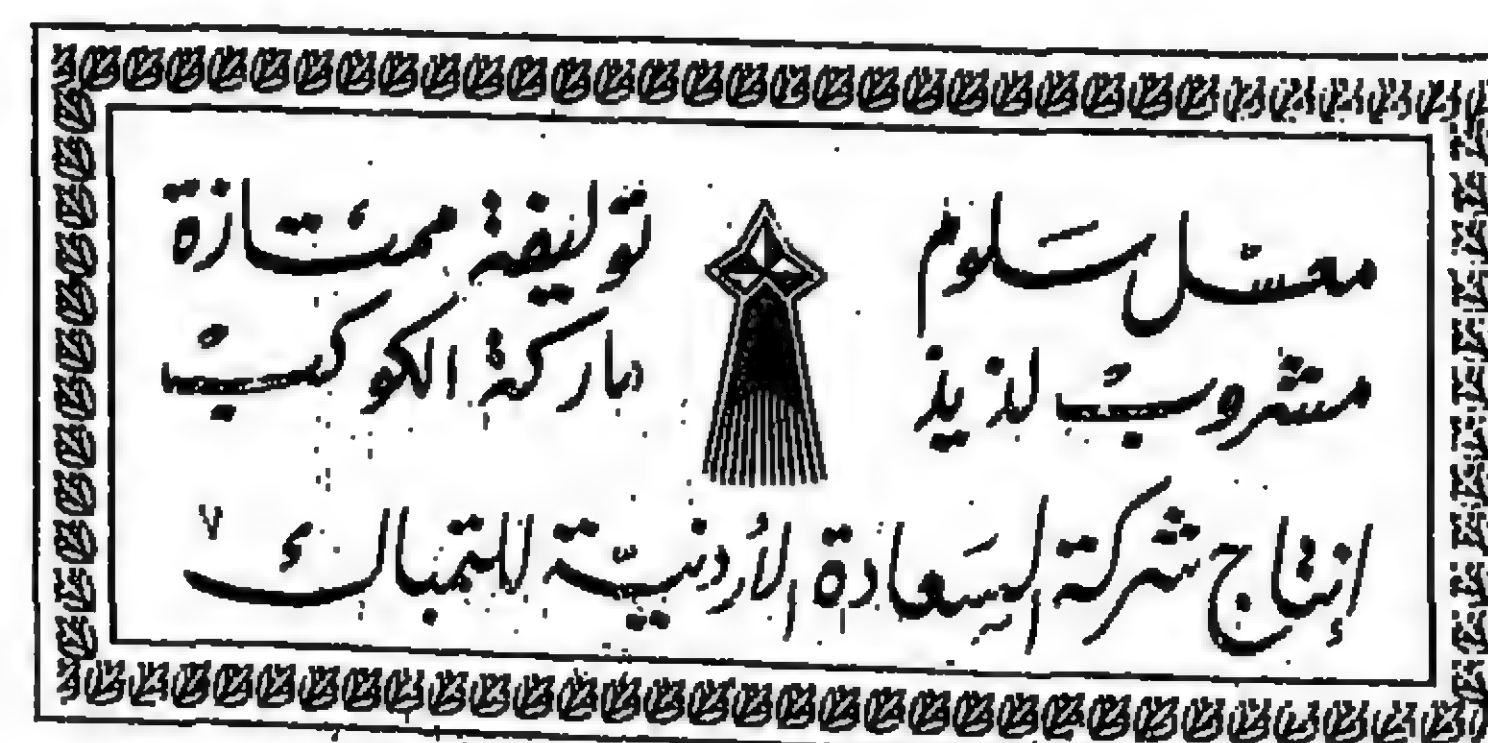 معسّل سَلوم
مشروبّ لذيذ
توليفة ممتازة
ماركة الكوكبّ
إنتاج شركة السَعادة الأردنيّة للتمباك
٧